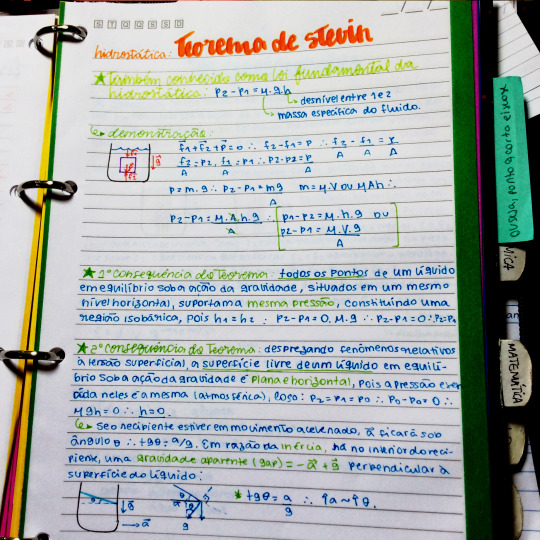 S T Q Q S S D
__/__/__
hidrostática: Teorema de stevin
★ também conhecido como lei fundamental da
hidrostática: P2 - P1 = μ.g.h
↳ desnível entre 1 e 2
↳ massa específica do fluido.
↳ demonstração:
F1 + F2 + P = 0 ∴ F2 - F1 = P ∴ F2/A - F1/A = P/A
F2/A = P2, F1/A = P1 ∴ P2 - P1 = P/A
P = m.g ∴ P2 - P1 = mg/A m = μ.V ou μAh ∴
P2 - P1 = μ.A.h.g/A ∴ [P1 - P2 = μ.h.g ou
P2 - P1 = μ.V.g/A]
★ 1° consequência do Teorema: todos os pontos de um líquido
em equilíbrio sob a ação da gravidade, situados em um mesmo
nível horizontal, suportam a mesma pressão, constituindo uma
região isobárica, pois h1 = h2 ∴ P2 - P1 = 0.μ.g ∴ P2 - P1 = 0 ∴ P2 = P1
★ 2° consequência do Teorema: desprezando fenômenos relativos
à tensão superficial, a superfície livre de um líquido em equilí-
brio sob a ação da gravidade é plana e horizontal, pois a pressão exer
cida neles é a mesma (atmosférica), logo: P2 = P1 = P0 ∴ P0 - P0 = 0 ∴
μgh = 0 ∴ h = 0.
↳ se o recipiente estiver em movimento acelerado, a ficará sob
ângulo θ ∴ tgθ = a/g. Em razão da inércia, há no interior do reci-
piente, uma gravidade aparente (gap) = -a + g perpendicular à
superfície do líquido:
* tgθ = a/g ∴ ↑a ~ ↑θ.
MATEMÁTICA